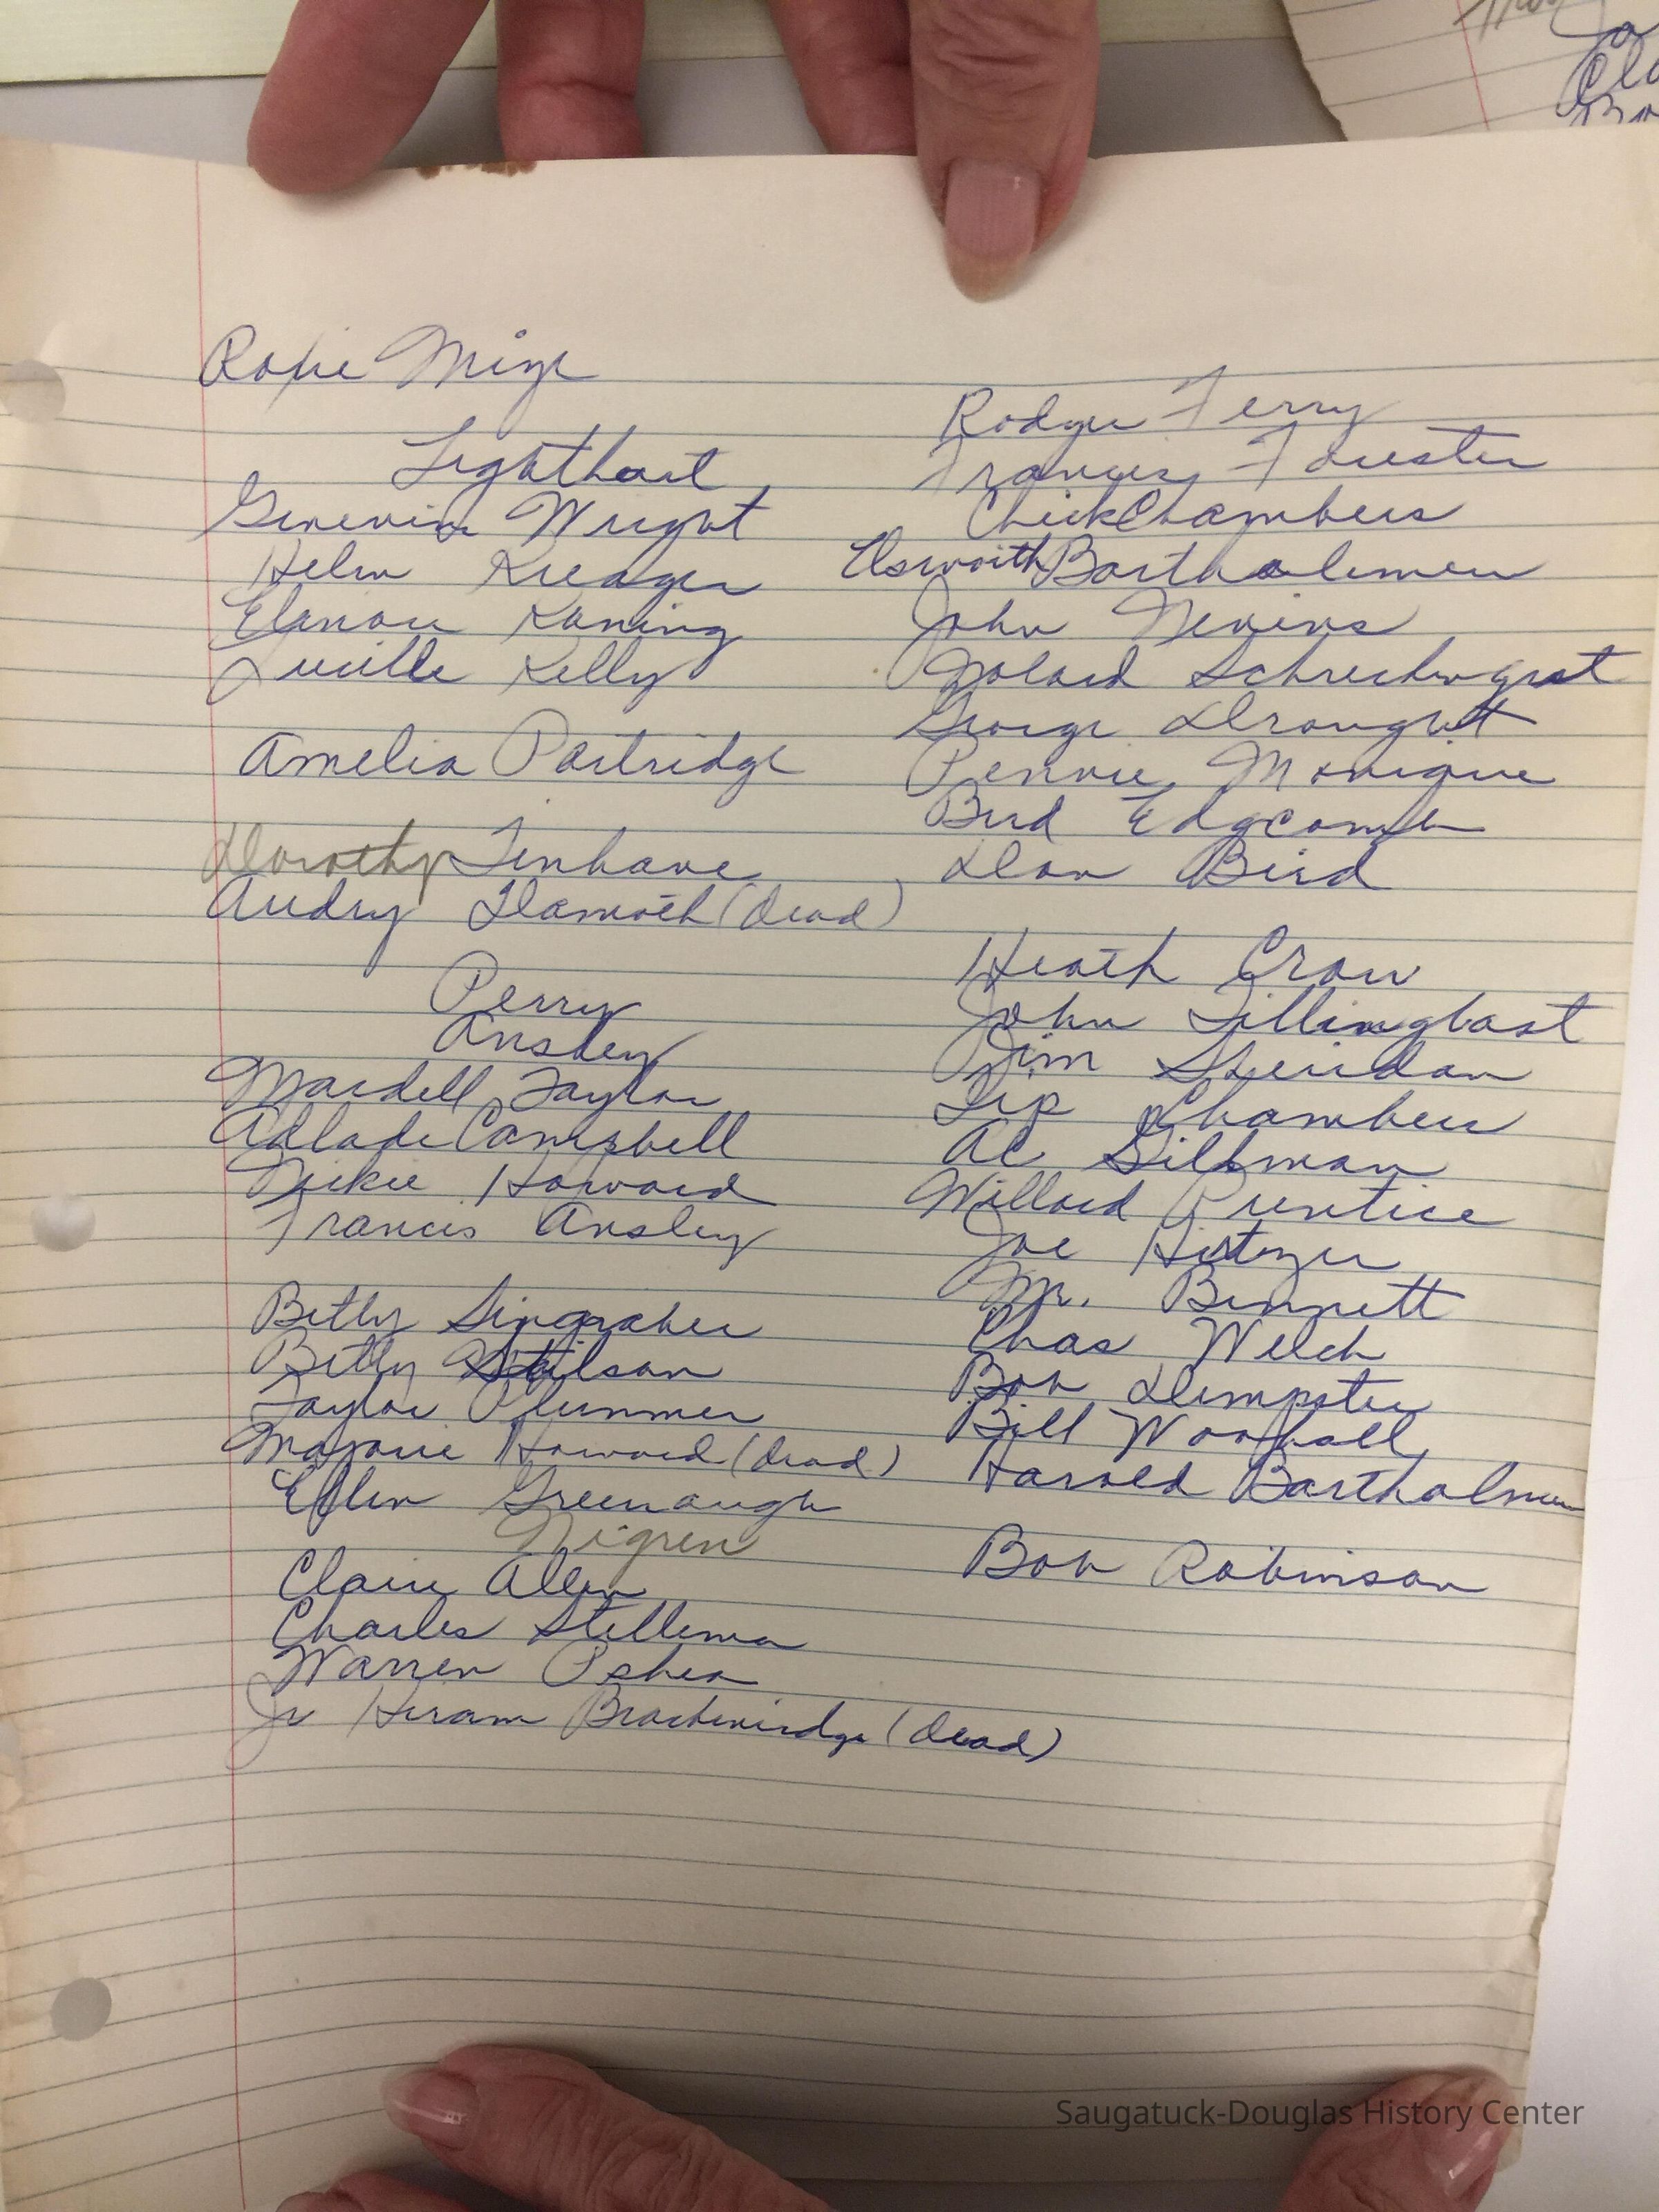 Roxie Mize
Lighthart
Genevive Wright
Helen Kreager
Elanore Koning
Lucille Kelly
Amelia Partridge
Dorothy Tenhave
Audry (dead)
Perry
Ansley
Mardell Taylor
Adlade Campbell
Nickie Howard
Francis Ansley
Betty Singraber
Betty Stilson
Taylor Plummer
Marjorie Howard (dead)
Ellen Greenaugh
Nigren
Claire Allen
Charles Stellema
Warren Pshea
Jr Hiram (dead)
Rodger Ferry
Francis Forester
Chick Chambers
Elsworth Bartholemew
John Nevins
George Drought
Pennie Monique
Bud Edgcomb
Don Bird
Heath Crow
John Tillinghast
Jim Sheridan
Lip Chambers
Al
Willard Prentice
Joe
Mr. Bennett
Chas Welch
Bob Dempster
Bill Woodall
Harold Bartholmew
Bob Robinson
Saugatuck-Douglas History Center